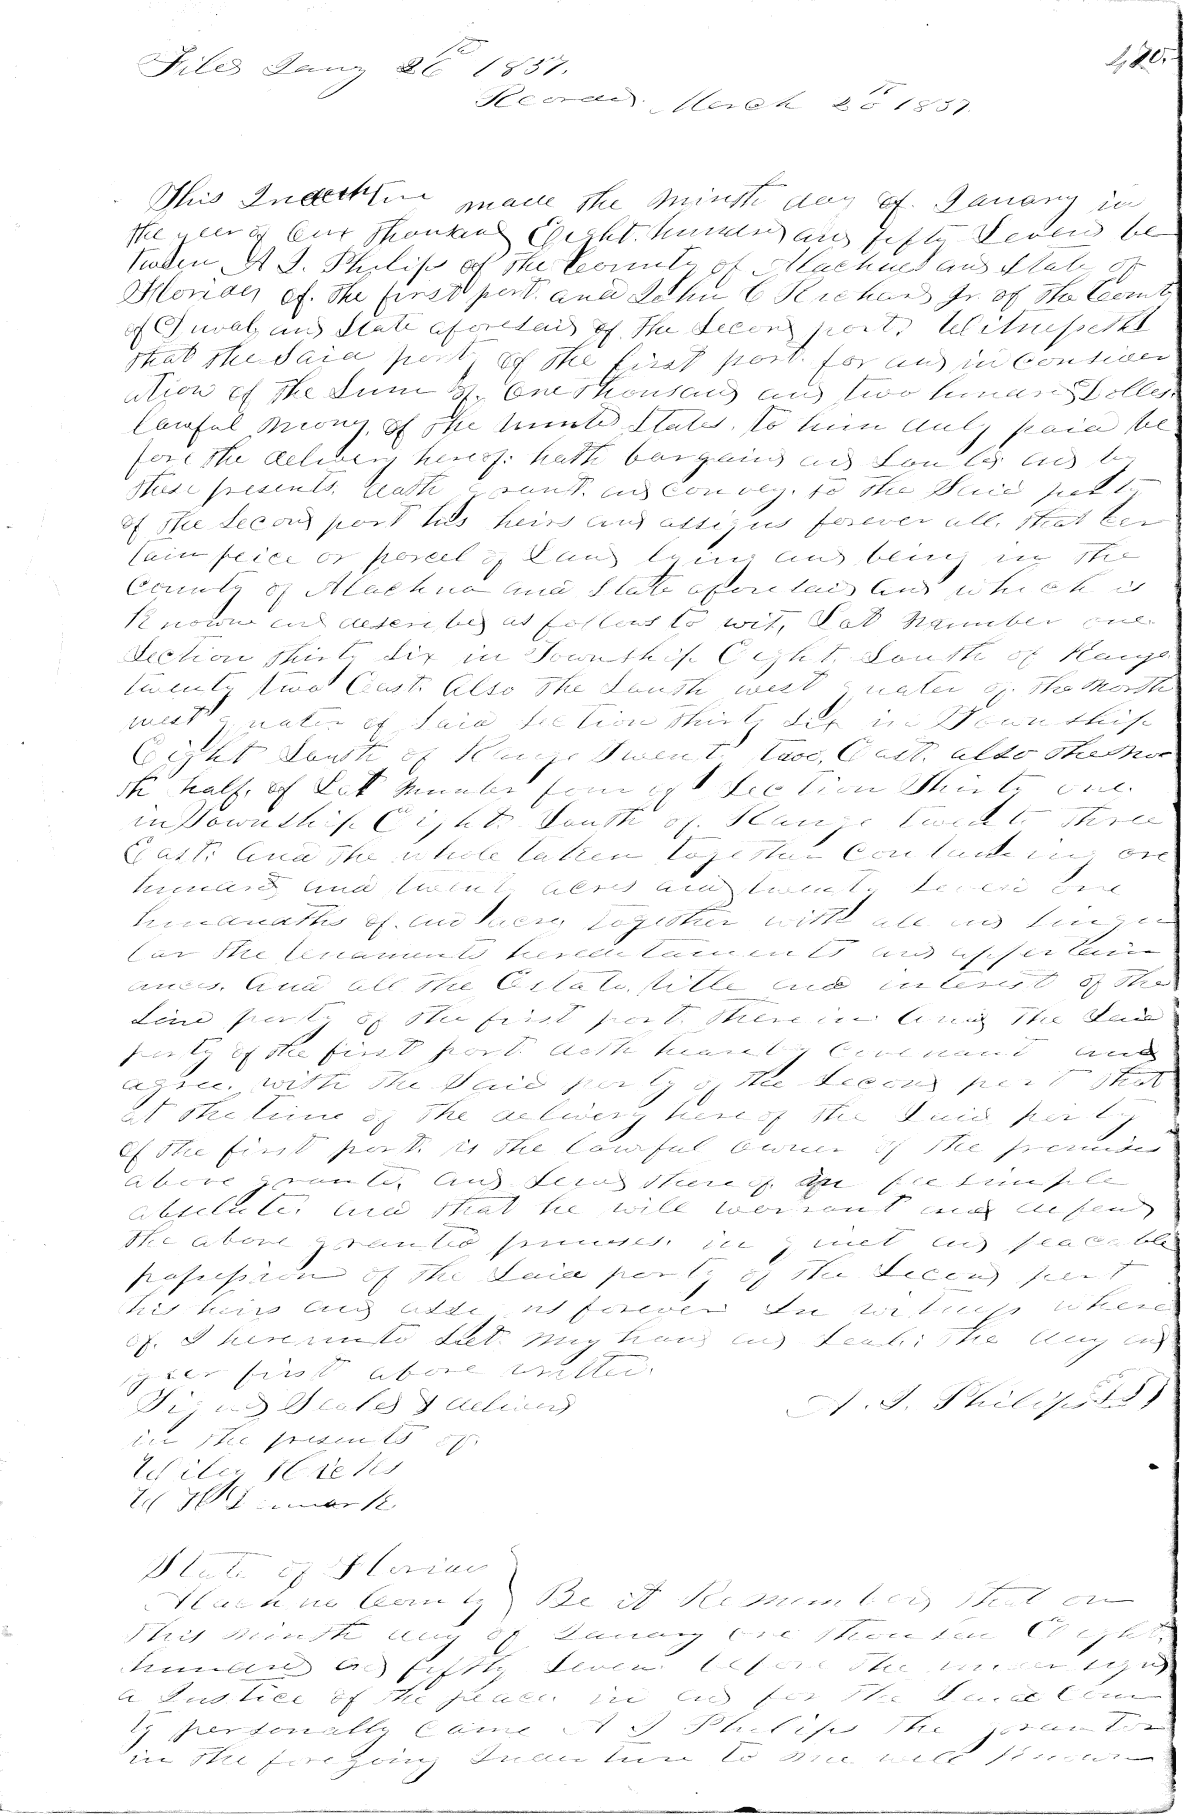 470.
Filed Jany 26th 1857.
Recorded March 26th 1857.
This Indenture made the Ninth day of January in
the year of our thousand Eight hundred and fifty Seven be
tween A. J. Philips of the County of Alachua and State of
Florida of the first part and John C Richard Jr. of the County
of Duval and State aforesaid of the Second part, Witnesseth
that the Said party of the first part for and in Consider
ation of the Sum of One Thousand and two hundred Dollars
lawful Money of the United States, to him duly paid be
fore the delivery hereof: hath bargained and Sold and by
these presents doth grant and convey to the Said party
of the Second part his heirs and assigns forever all that Cer
tain peice or parcel of Land lying and being in the
County of Alachua and State aforesaid and which is
Known and described as follows to wit, Lot Number one
Section thirty Six in Township Eight South of Range
twenty two East. Also the South west quater of the North
west quater of Said Section thirty Six in Township
Eight South of Range Twenty two, East. also the Nor
th half of Lot Number four of Section Thirty one
in Township Eight South of Range twenty three
East: And the whole taken together Containing one
hundred and twenty acres and twenty Seven one
hundredths of an acre, together with all and Singu
lar the tenaments hereditaments and appertain
ances. And all the Estate, title and interest of the
Said party of the first part therein And the Said
party of the first part doth heareby Covenant and
agree with the Said party of the Second part that
at the time of the delivery hereof the Said party
of the first part is the lawful owner of the premises
above granted, and Seized thereof in fee simple
absolute. And that he will warrant and defend
the above granted premises in quiet and peacable
possession of the Said party of the Second part
his heirs and assigns forever In witness where
of I hereunto Set My hand and Seal: the day and
year first above written.
Signed Sealed & delivered A. J. Philips
in the presents of
Wiley Hicks
State of Florida
Alachua County Be it Remembered that on
This Ninth day of January one thousand Eight
hundred and fiftty Seven before the undersigned
a Justice of the peace in and for the Said Coun
ty personally Came A J Philips the grantor
in the foregoing Indenture to me well Known